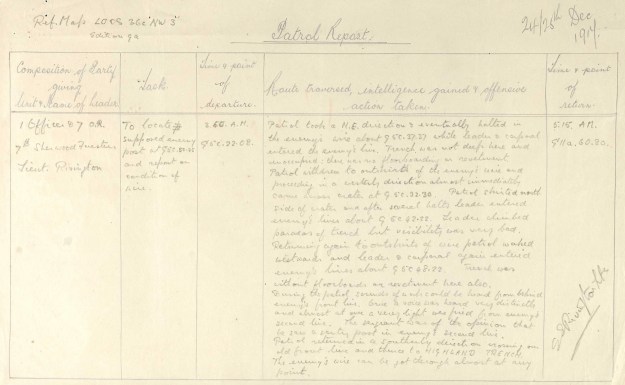 Ref. Map LOOS 36c NW 3
Edition 9a
Patrol Report.
24/25th Dec
1917.
Composition of Party
giving
Unit & Name of Leader
Task
Time & point
of
departure.
Route traversed, intelligence gained & offensive
action taken.
Time & point
of
return.
1 Officer & 7 O.R.
7th Sherwood Foresters
Lieut: Rivington
To locate
supposed enemy
post at
and report on
condition of
wire.
A.M.
Patrol took a N.E. direction & eventually halted in
the enemy's wire about while leader & corporal
entered the enemy's line. Trench was not deep here and
unoccupied. There was no floorboards or revetment
Patrol withdrew to outskirts of the enemy's wire and
proceeding in a westerly direction almost immediately
came across crater at Patrol skirted north
side of crater and after several halts leader entered
enemy's lines about Leader climbed
parados of trench but visibility was very bad.
Returning again to outskirts of wire patrol worked
westwards and leader & corporal again entered
enemy's lines about Trench was
without floorboards or revetment here also.
During the patrol sounds of work could be heard from behind
enemy's front line. Once a voice was heard very distinctly
and almost at once a very light was fired from enemy's
second line. The sergeant was of the opinion that
he saw a sentry post in enemy's second line.
Patrol returned in a southerly direction crossing on
old front line and thence to HIGHLAND TRENCH.
The enemy's wire can be got through almost at any
point.
5.15 A.M.
Rivington